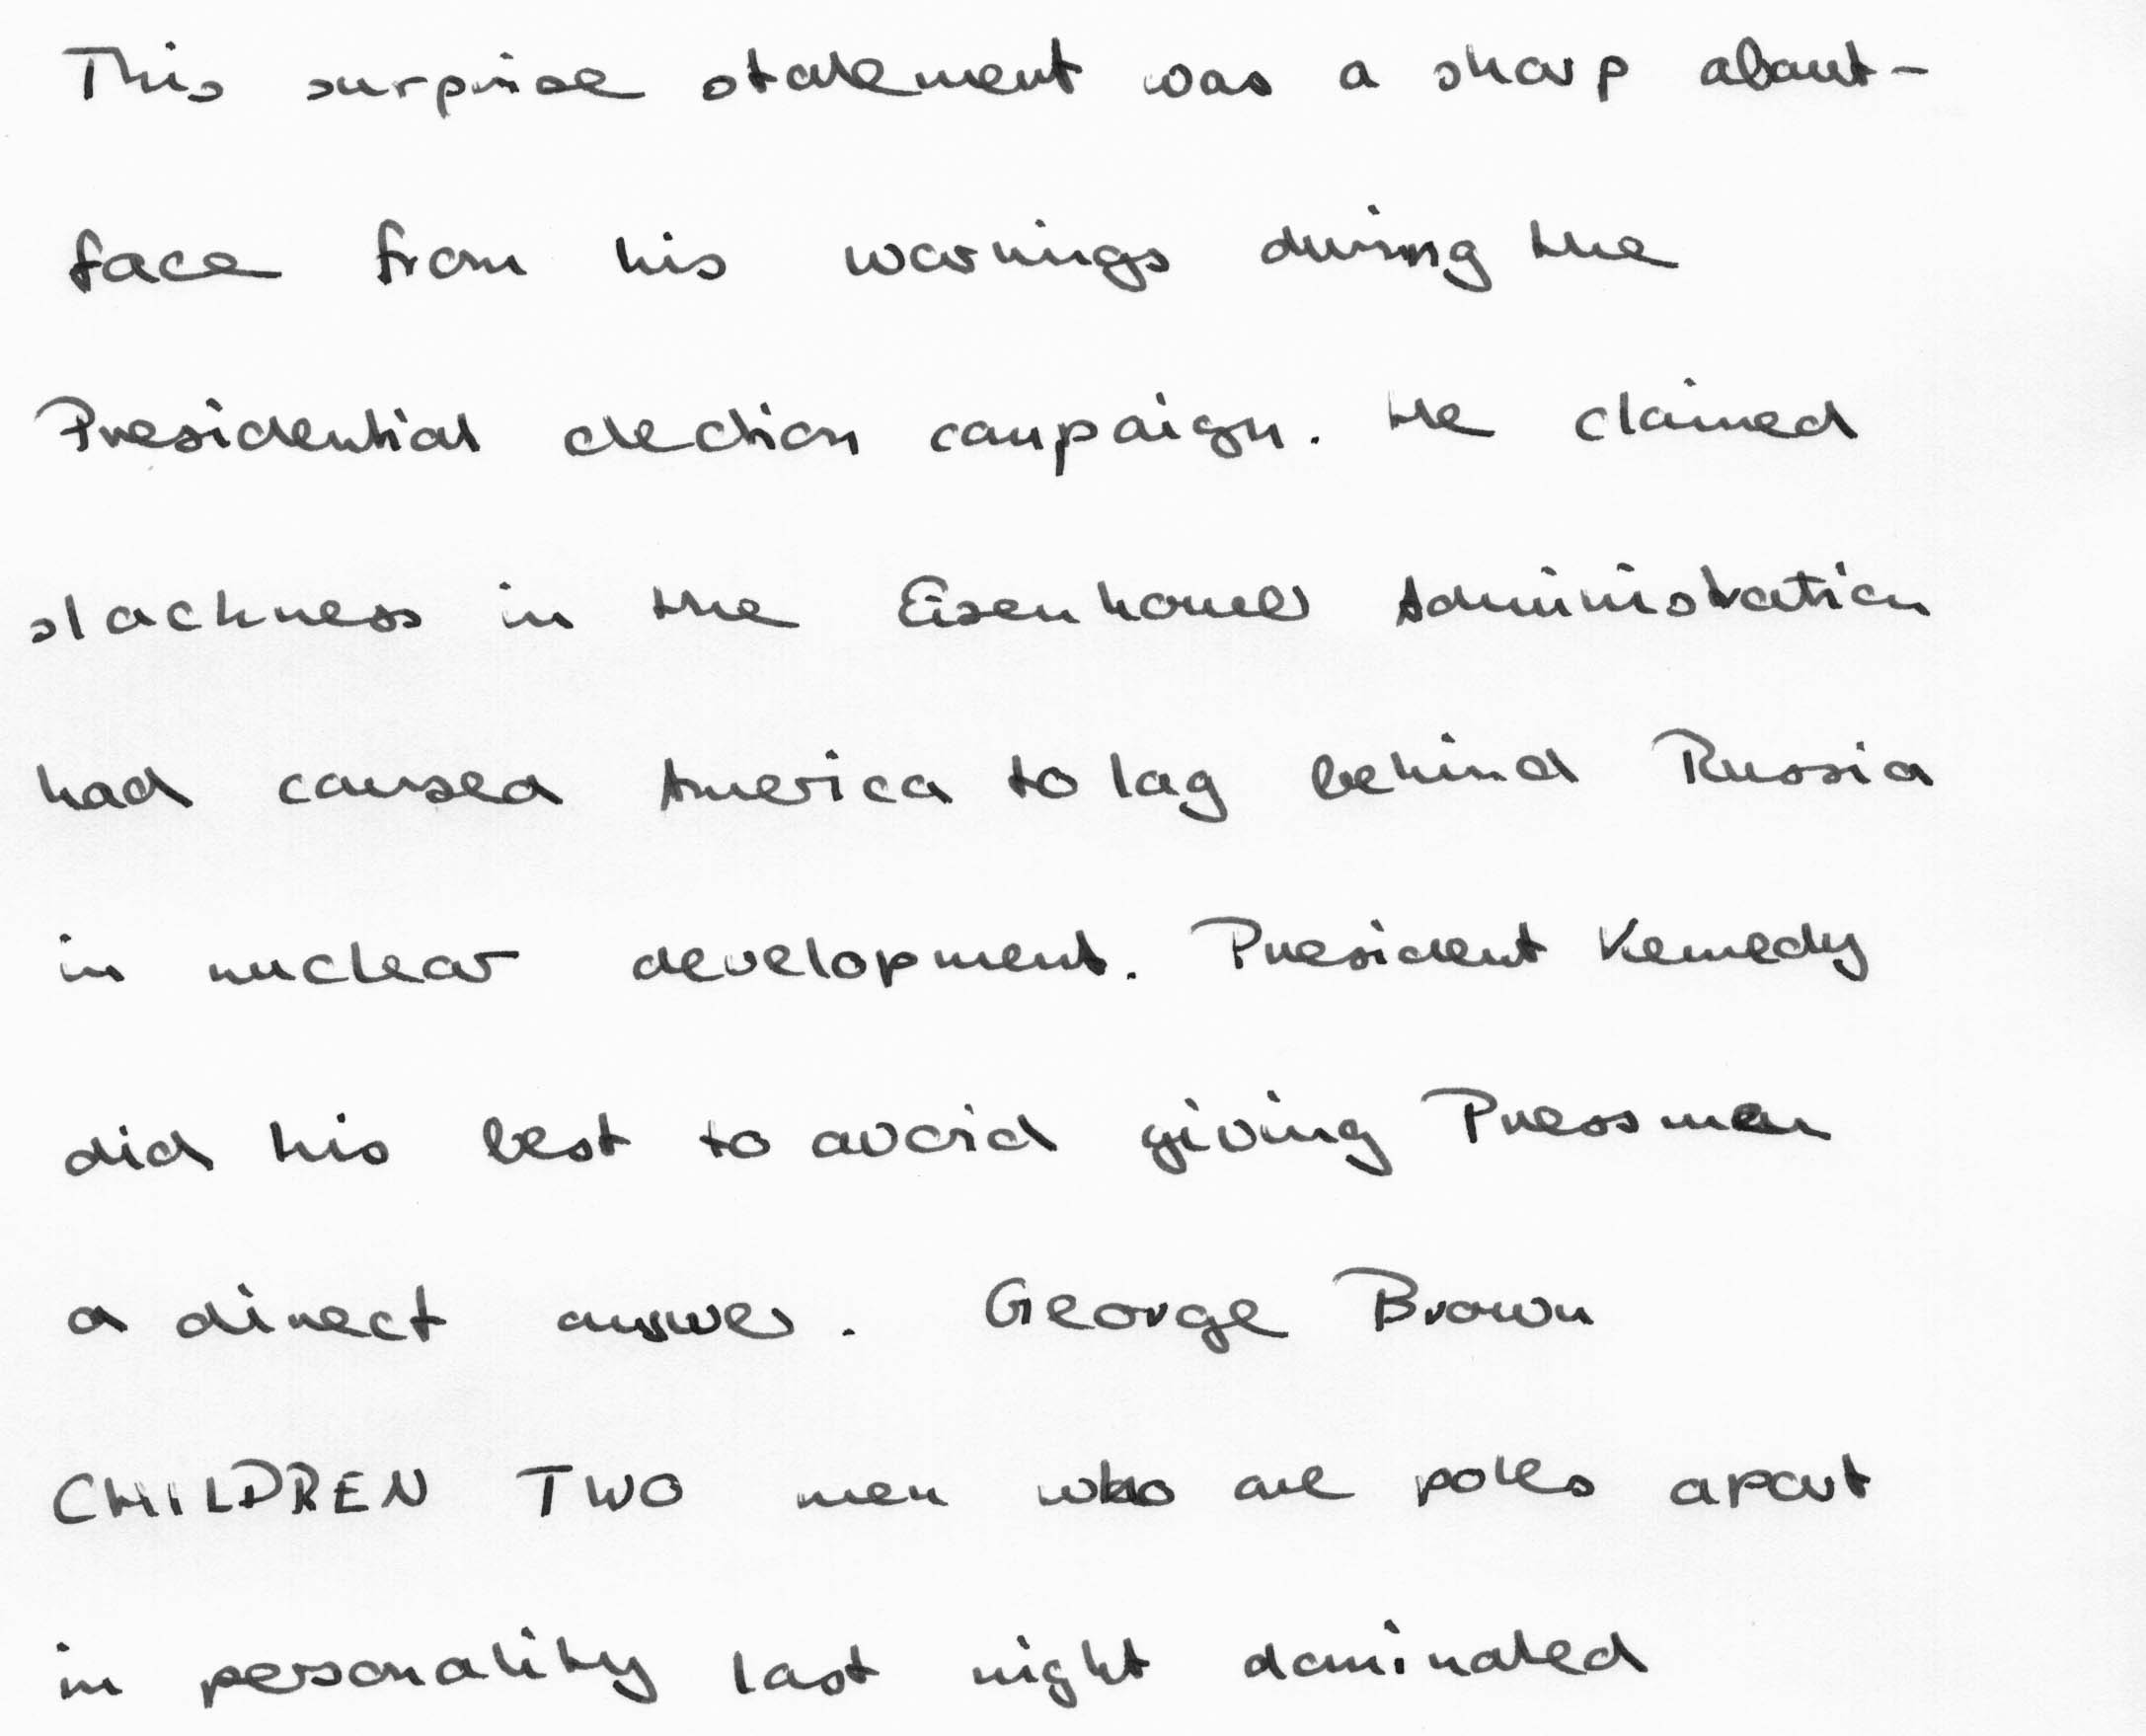 This surprise statement was a sharp about-
face from his warnings during the
Presidential election campaign. He claimed
slackness in the Eisenhower Administration
had caused America to lag behind Russia
in nuclear development. President Kennedy
did his best to avoid giving Pressmen
a direct answer. George Brown
CHILDREN TWO men who are poles apart
in personality last night dominated